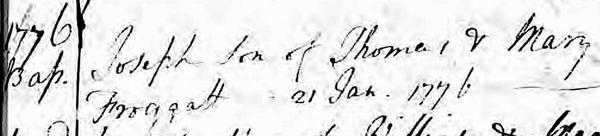 1776
Bap. Joseph Son of Thomas & Mary
Froggatt 21 Jan. 1776